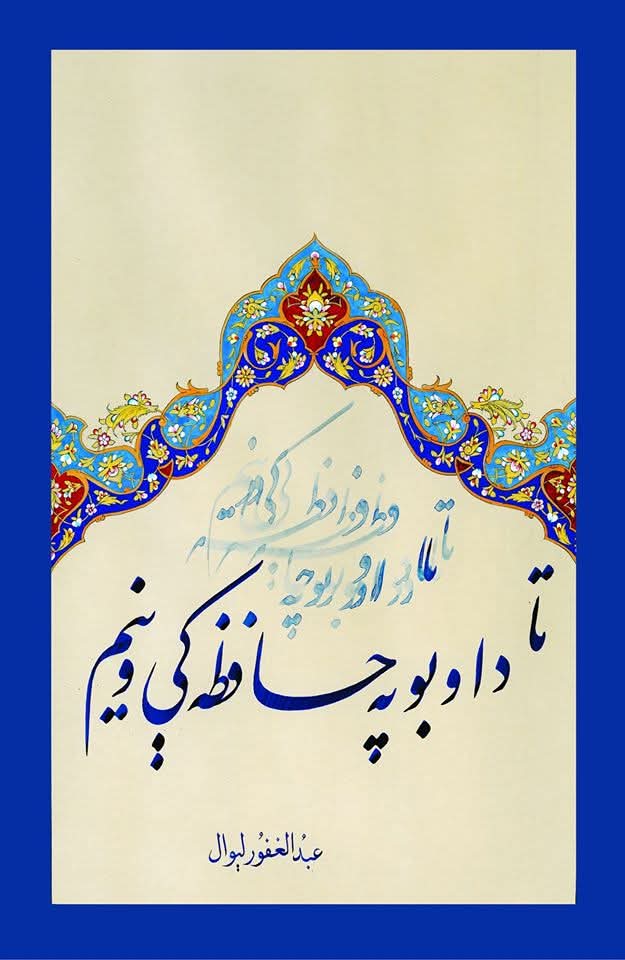 تا
د اوبو په حافظه کې وینم
عبدُالغفُور لېوال